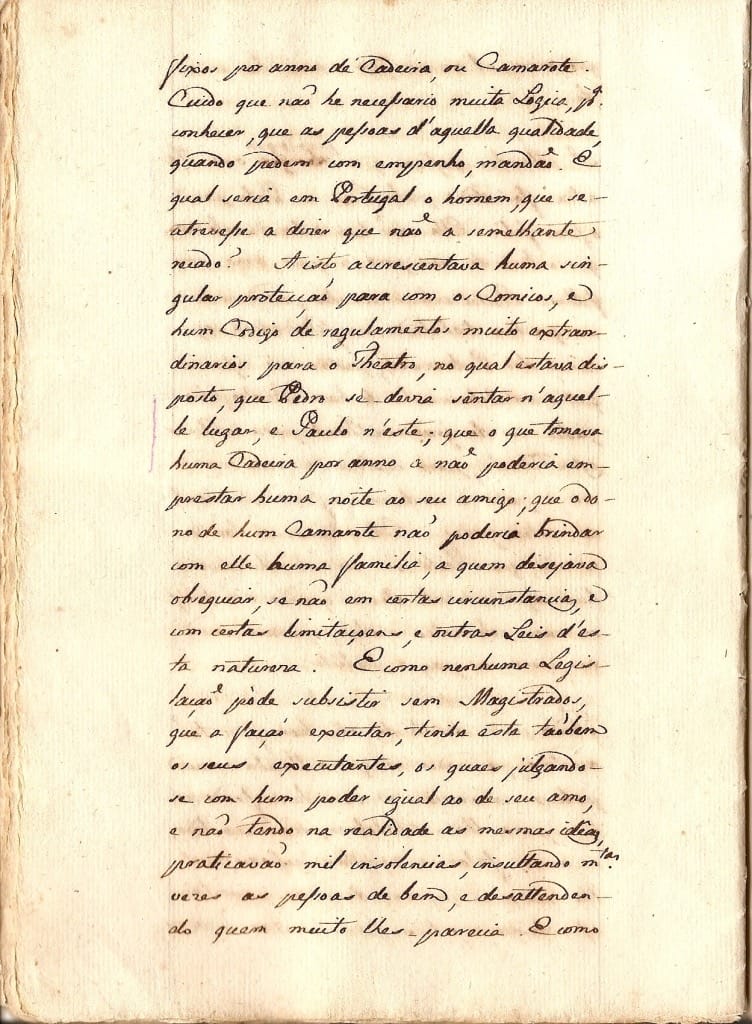 fixos por anno de Cadeira, ou Camarote.
Cuido que não he necessario muita Logica, pª.
conhecer, que as pessoas d'aquella qualidade,
quando pedem com empenho, mandaõ. E
qual seria em Portugal o homem, que se-
atrevesse a dizer que naõ a semelhante
recado? A isto acrescentava huma sin-
gular protecçaõ para com os Comicos, e
hum Codigo de regulamentos muito extraor-
dinarios para o Theatro, no qual estava dis-
posto, que Pedro se-devia sentar n'aquel-
le lugar, e Paulo n'este; que o que tomava
huma Cadeira por anno a naõ poderia em-
prestar huma noite ao seu amigo; que o do-
no de hum Camarote naõ poderia brindar
com elle huma familia, a quem desejava
obsequiar, se não em certas circunstancias, e
com certas limitaçoens, e outras Leis d'es-
ta natureza. E como nenhuma Legis-
laçaõ póde subsistir sem Magistrados,
que a façaõ executar, tinha esta taõbem
os seus executantes, os quaes julgando-
se com hum poder igual ao de seu amo,
e naõ tendo na realidade as mesmas idêas,
praticavaõ mil insolencias, insultando m.tas
vezes as pessoas de bem, e desattenden-
do quem muito lhes-parecia. E como